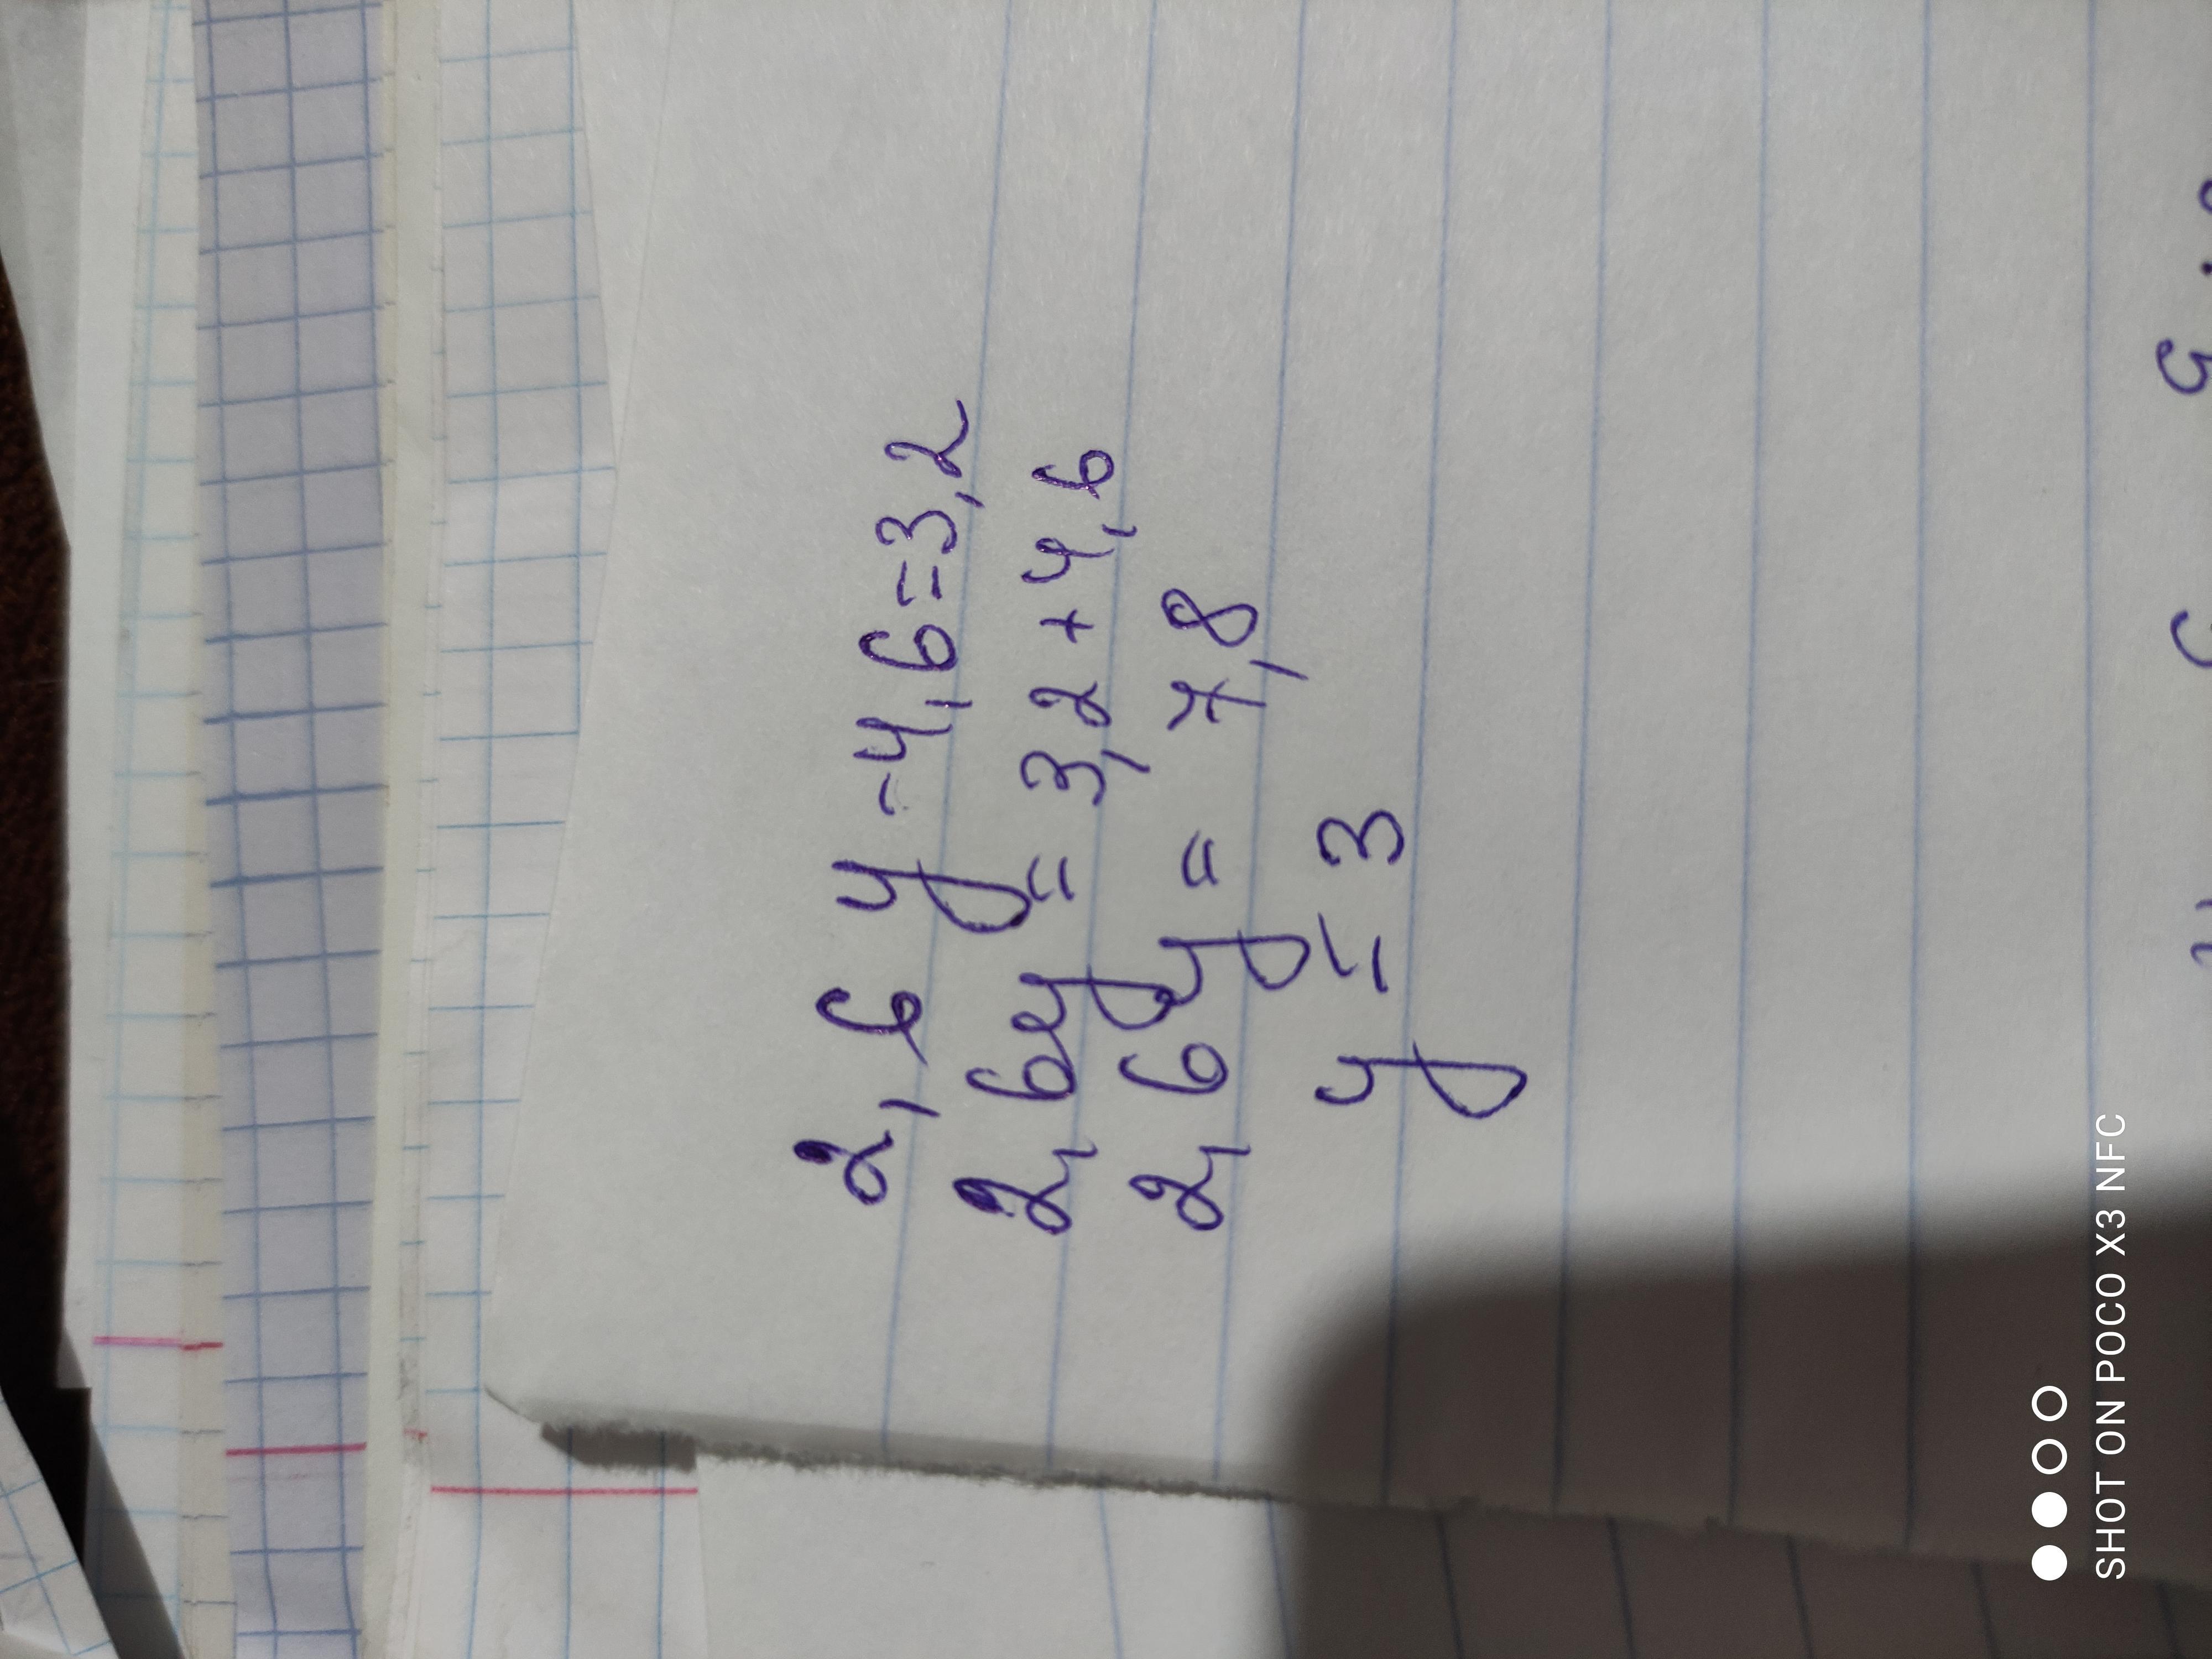 2,6 y - 4,6 = 3,2
2,6y = 3,2 + 4,6
2,6 y = 7,8
y = 3
SHOT ON POCO X3 NFC